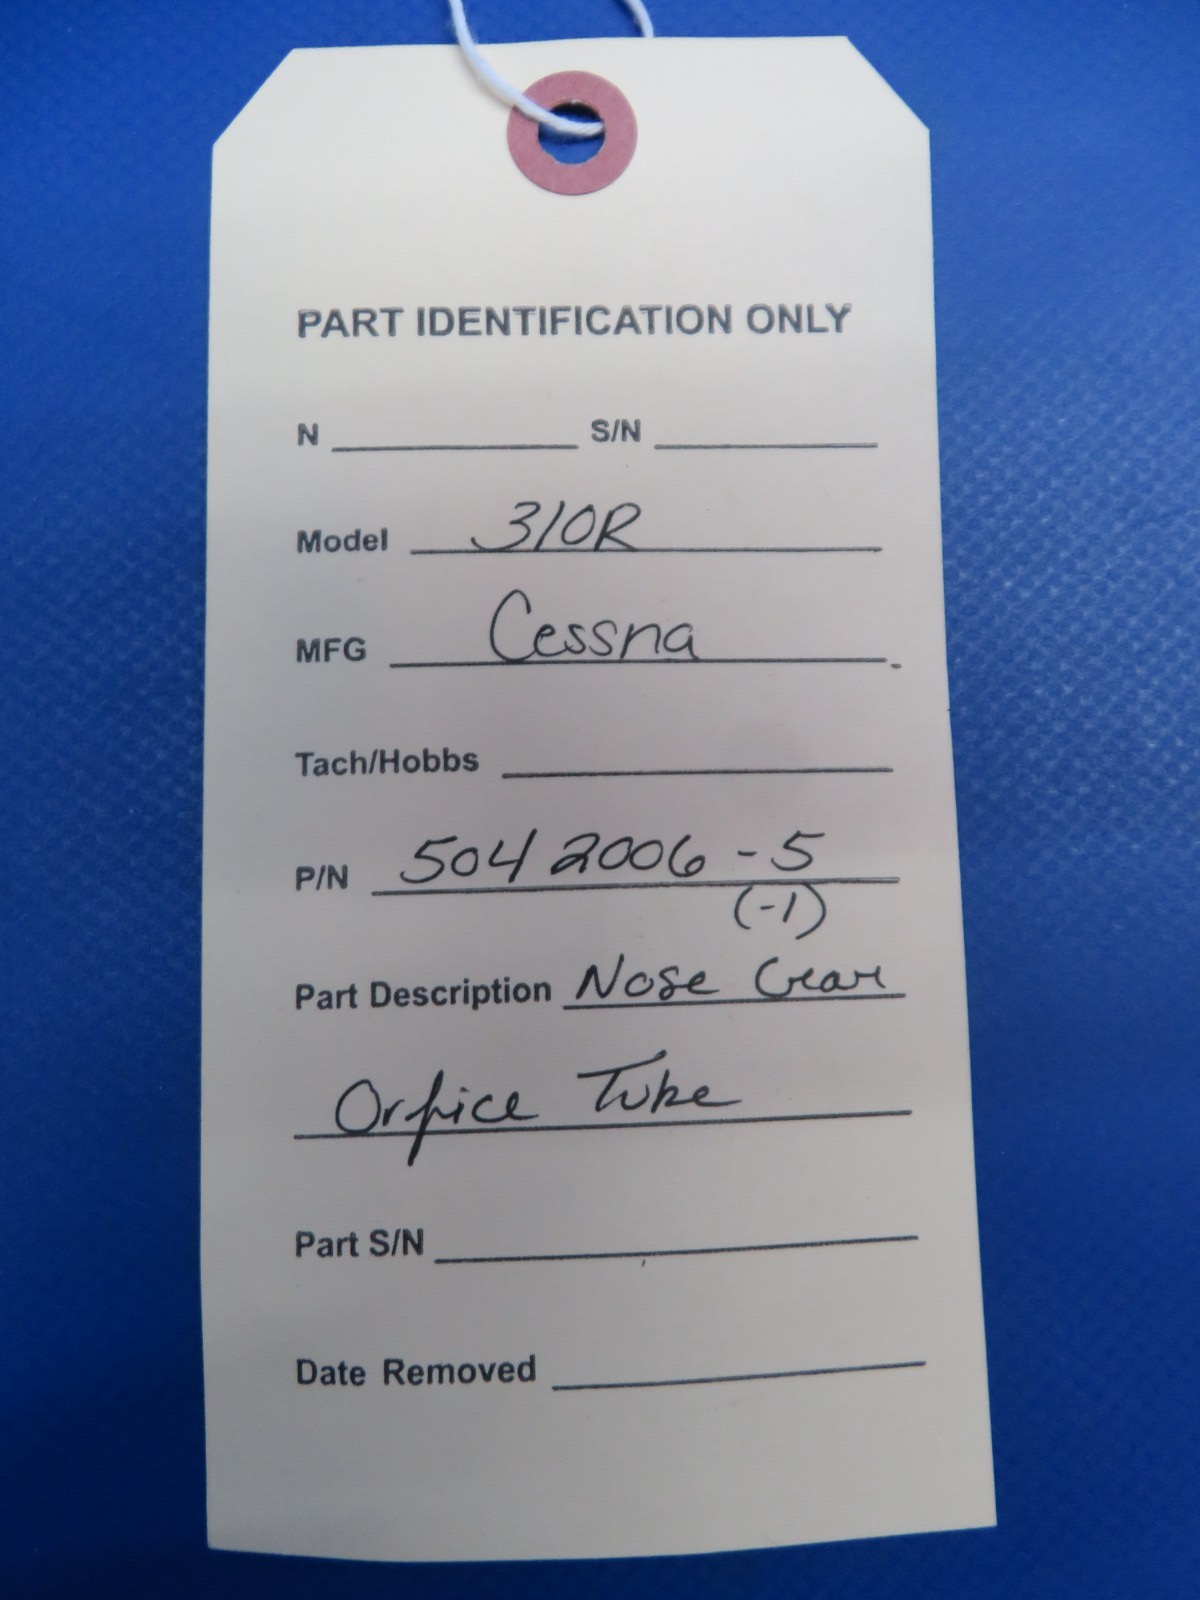 PART IDENTIFICATION ONLY
N S/N
Model 310R
MFG Cessna
Tach/Hobbs
P/N 5042006-5
(-1)
Part Description Nose Gear
Orfice Tube
Part S/N
Date Removed